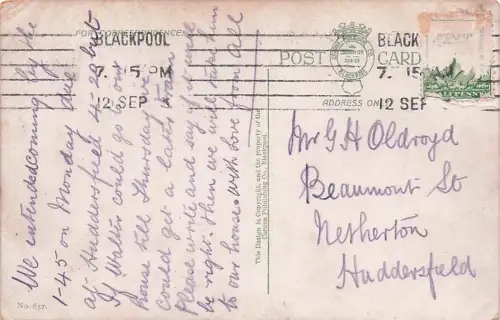 FOR CORRESPONDENCE
BLACKPOOL
7. 15 PM
12 SEP
POST CARD
BLACK
7. 15
12 SEP
ADDRESS ON
We intended coming by the
1-45 on Monday due
at Huddersfield 4-20 but
If Walter could go to our
house till Thursday we
could get a later train
Please write and say if it will
be right. Then we will take him
to our house. With Love from All
This Design is Copyright, and the property of the
Publishing Co., Blackpool.
Mr G H Oldroyd
Beaumont St
Netherton
Huddersfield
No. 657.